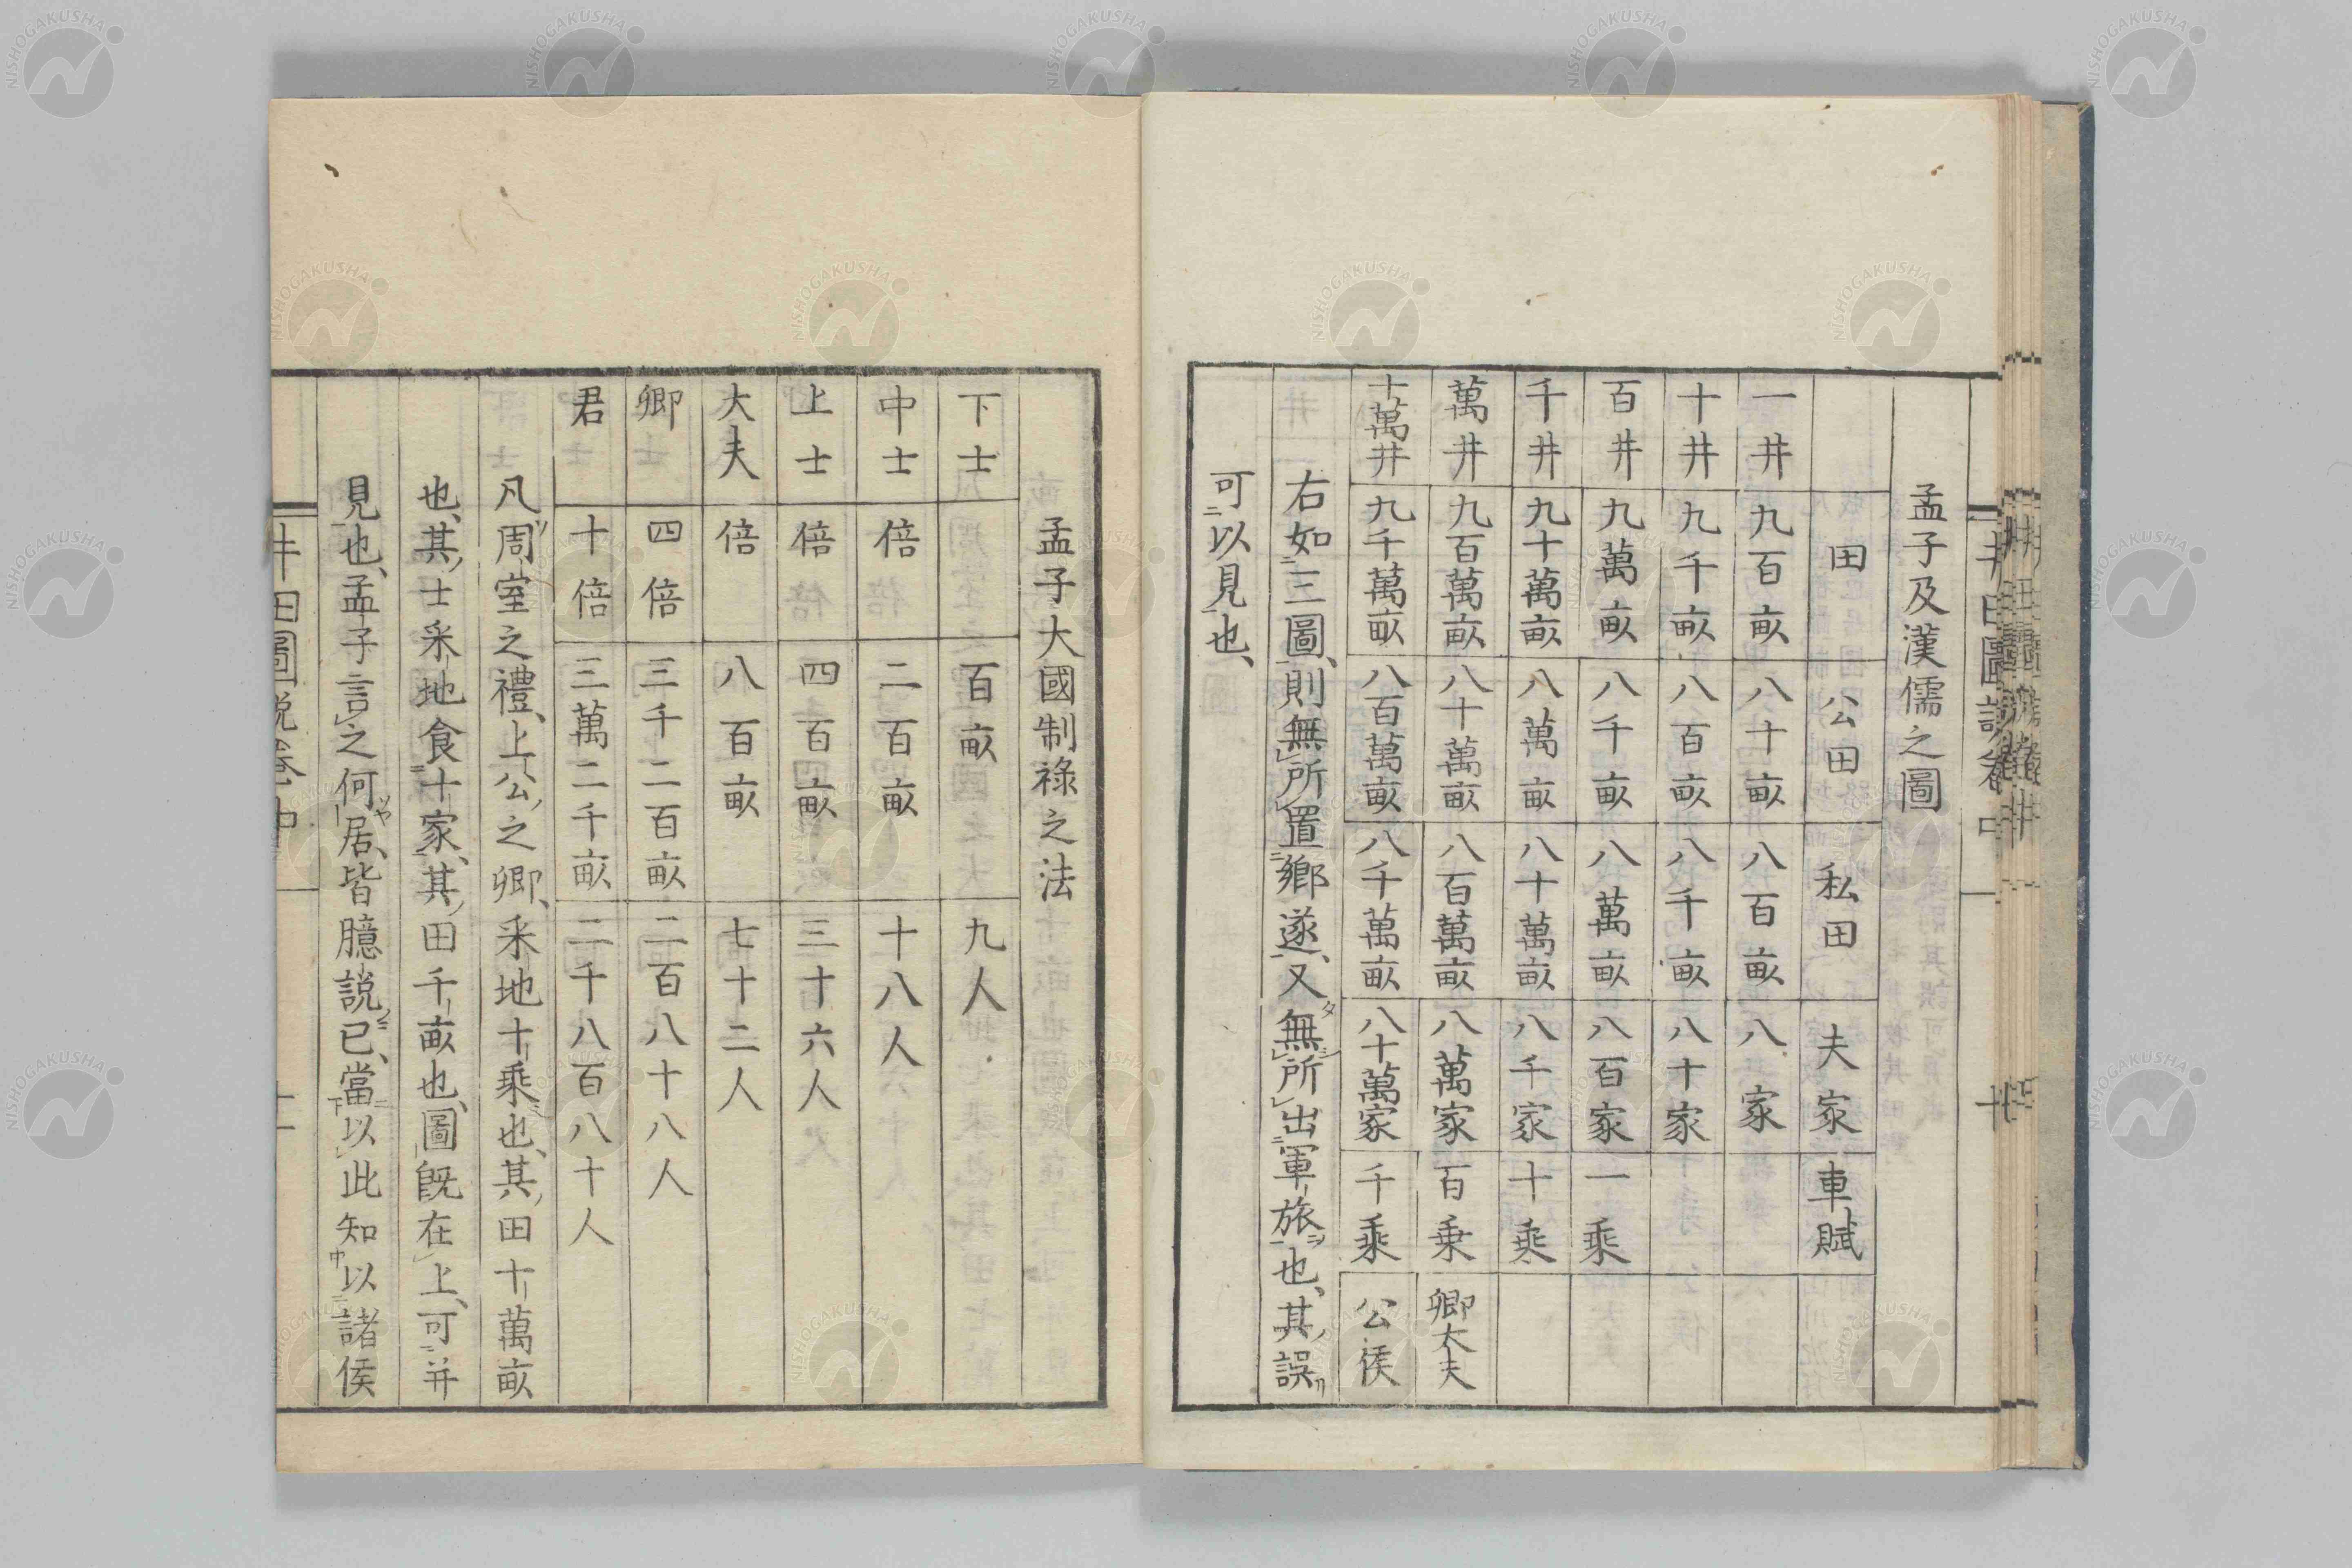 孟子及漢儒之圖
田 公田 私田 夫家 車賦
一井 九百畝 八十畝 八百畝 八家
十井 九千畝 八百畝 八千畝 八十家
百井 九萬畝 八千畝 八萬畝 八百家 一乘
千井 九十萬畝 八萬畝 八十萬畝 八千家 十乘
萬井 九百萬畝 八十萬畝 八百萬畝 八萬家 百乘 卿大夫
十萬井 九千萬畝 八百萬畝 八千萬畝 八十萬家 千乘 公侯
右如三圖、則無所置鄉遂、又無所出軍旅也、其誤
可以見也、
孟子大國制祿之法
下士 百畝 九人
中士 倍 二百畝 十八人
上士 倍 四百畝 三十六人
大夫 倍 八百畝 七十二人
卿 四倍 三千二百畝 二百八十八人
君 十倍 三萬二千畝 二千八百八十人
凡周室之禮、上公之卿、采地十乘也、其田十萬畝
也、其士采地食十家、其田千畝也、圖既在上、可并
見也、孟子言之何居、皆臆說已、當以此知以諸侯
井田圖説卷中
NISHOGAKUSHA